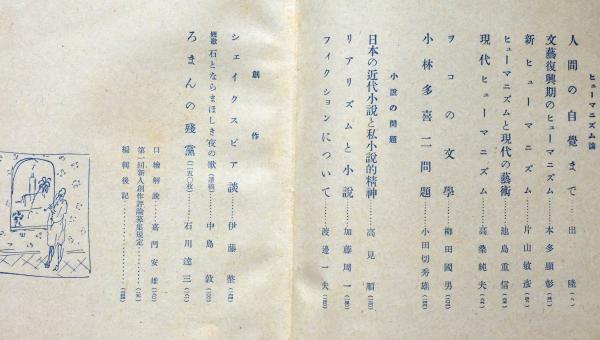 ヒューマニズム論
人間の自覺まで………出隆
文藝復興期のヒューマニズム………本多顯彰
新ヒューマニズム………片山敏彦
ヒューマニズムと現代の藝術………池島重信
現代ヒューマニズム………高桑純夫
ヲコの文學………柳田國男
小林多喜二問題………小田切秀雄
小說の問題
日本の近代小說と私小說的精神………高見順
リアリズムと小說………加藤周一
フィクションについて………渡邊一夫
創作
シェイクスピア談………伊藤整
石とならまほしき夜の歌(遺稿)………中島敦
ろまんの殘黨(一五〇枚)………石川達三
口繪解說………嘉門安雄
第一回新人創作評論募集規定………
編輯後記………